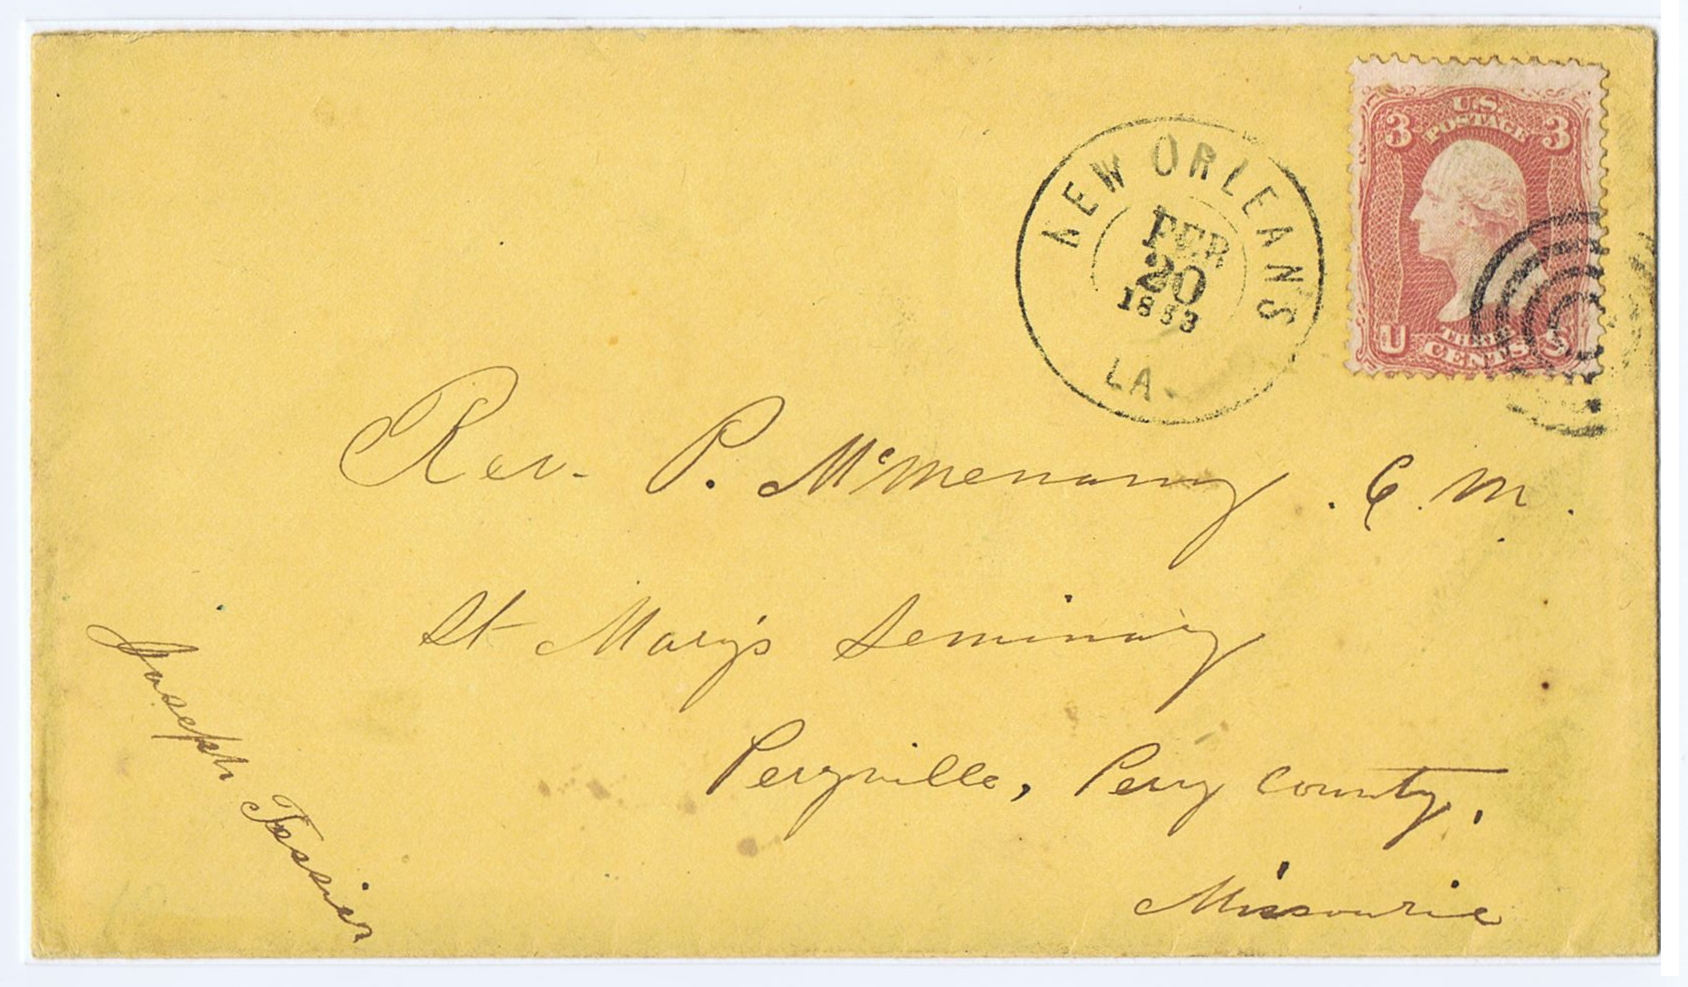 U.S.
POSTAGE
3 3
U S
THREE
CENTS
NEW ORLEANS
FEB
20
LA.
Rev. P. McMenamy. C. M.
St Mary's Seminary
Perryville, Perry County,
Missourie
Joseph Tessier